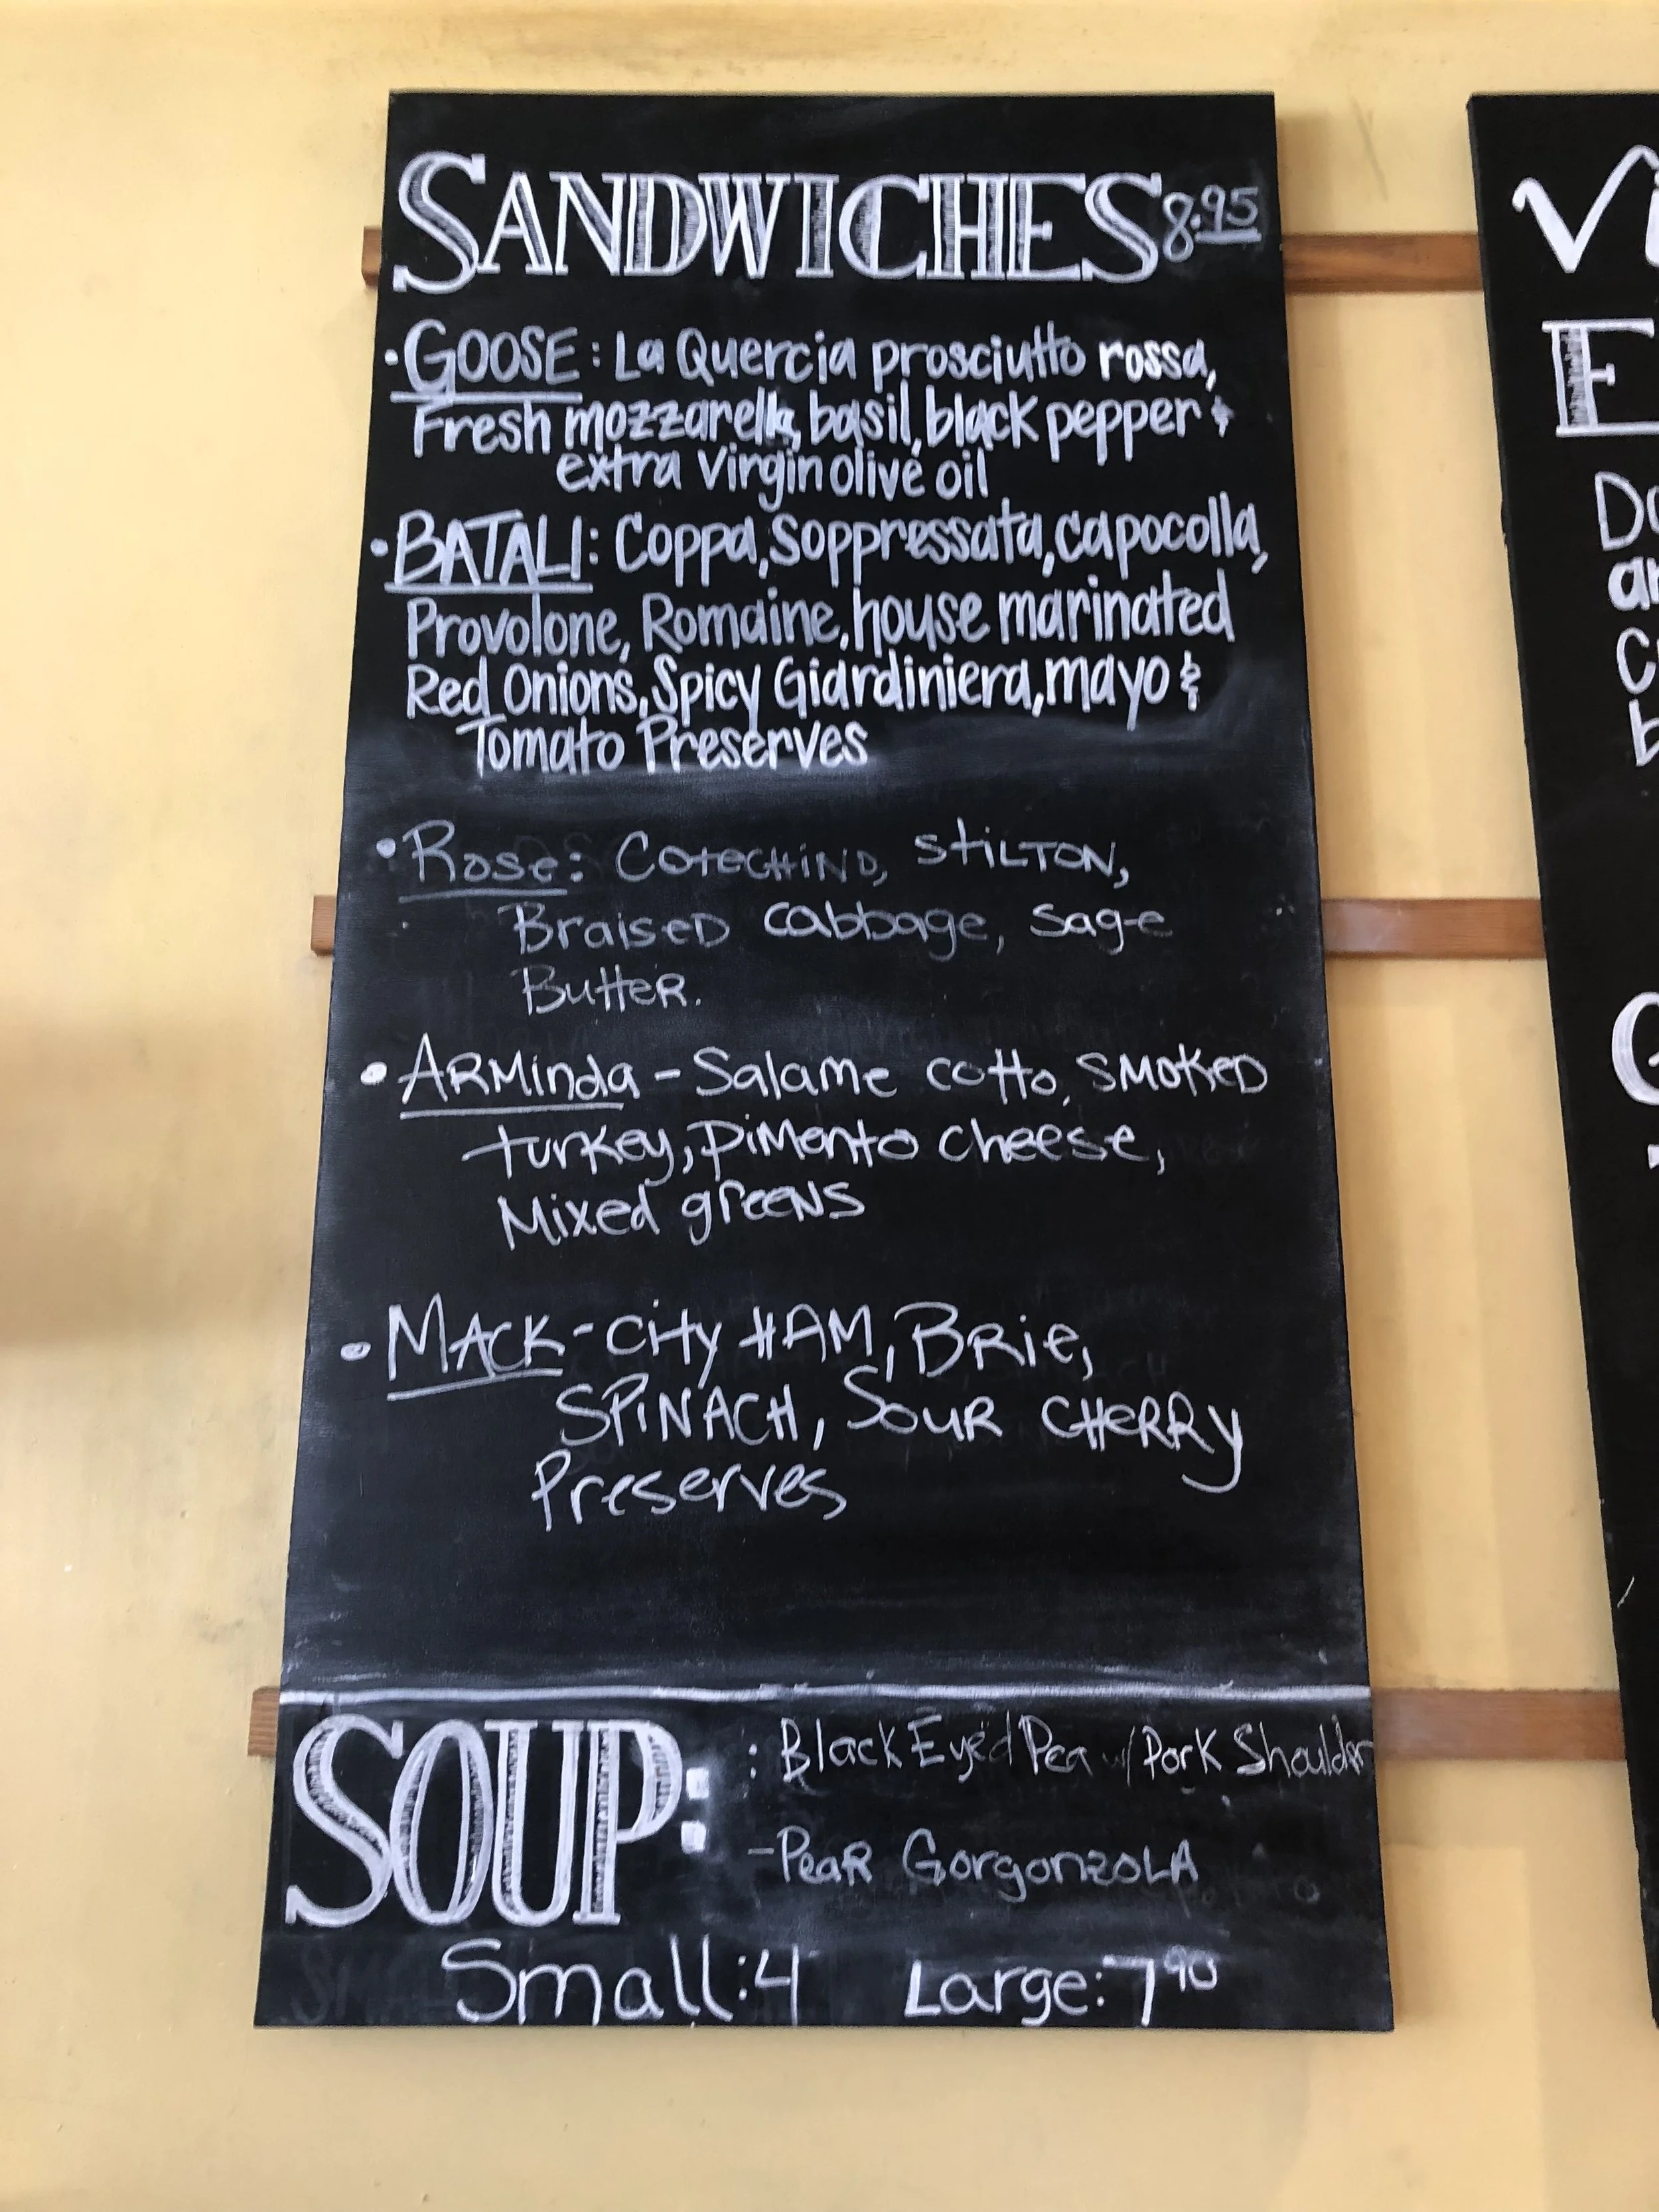 SANDWICHES 8.95
• GOOSE: La Quercia prosciutto rossa,
Fresh mozzarella, basil, black pepper &
extra virgin olive oil
• BATALI: Coppa, Soppressata, capocolla,
Provolone, Romaine, house marinated
Red Onions, Spicy Giardiniera, mayo &
Tomato Preserves
• Rose: COTECHINO, STILTON,
BraiseD cabbage, sage
ButteR.
• ARMinda - Salame cotto, SMOKED
turkey, piMento cheese,
Mixed greeNS
• MACK - City HAM, BRie,
SPiNACH, SOUR CHERRY
Preserves
SOUP: : Black Eyed Pea w/ Pork Shoulder
- PeaR GorgonzOLA
Small: 4 Large: 7 90
Vi
E
Do
an
C
b
G